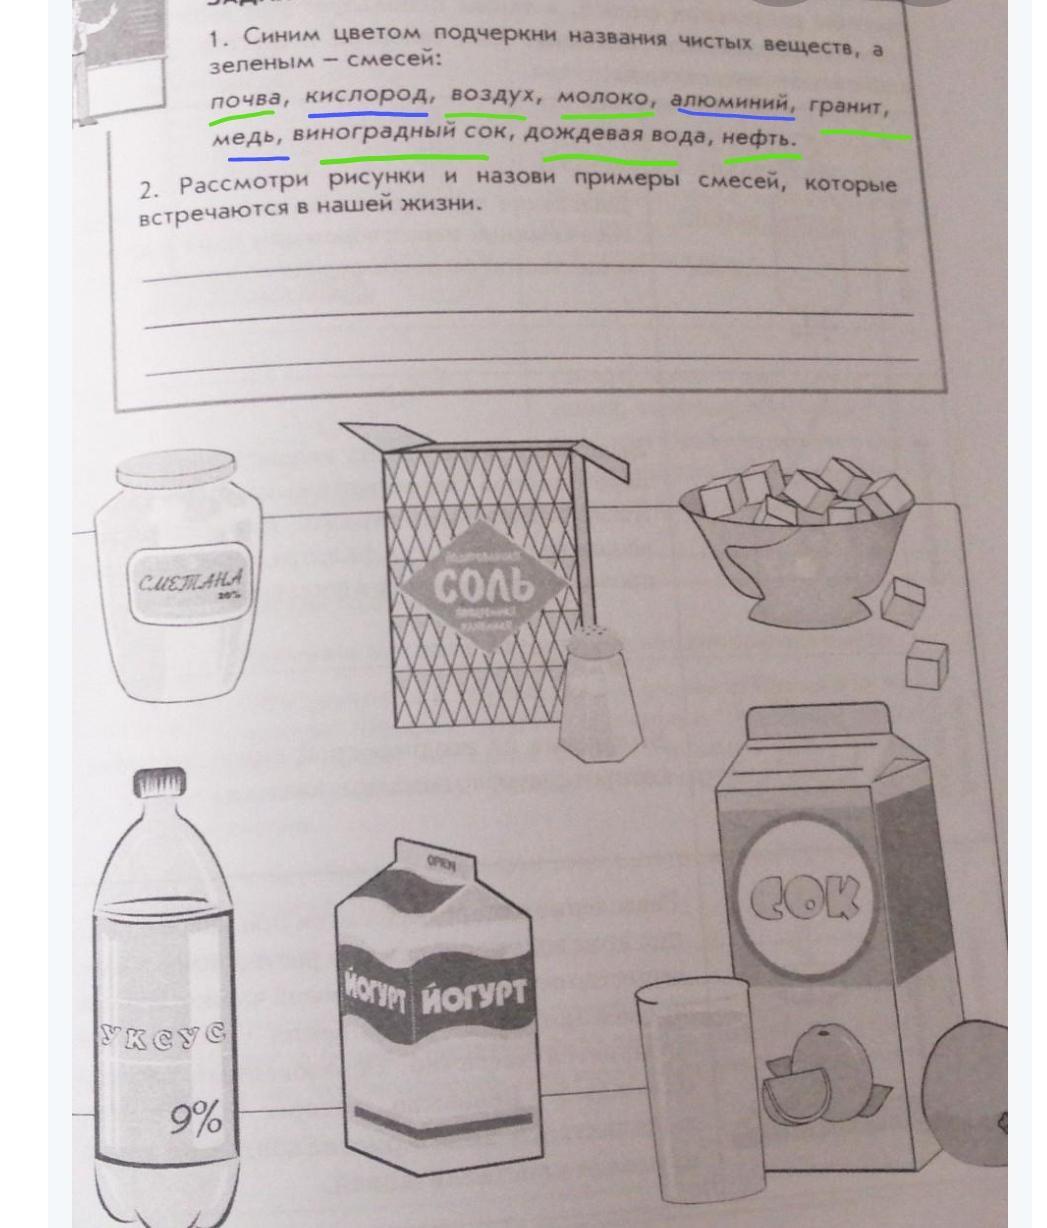 1. Синим цветом подчеркни названия чистых веществ, а
зеленым – смесей:
почва, кислород, воздух, молоко, алюминий, гранит,
медь, виноградный сок, дождевая вода, нефть.
2. Рассмотри рисунки и назови примеры смесей, которые
встречаются в нашей жизни.
СМЕТАНА
20%
СОЛЬ
OPEN
СОК
ЙОГУРТ ЙОГУРТ
УКСУС
9%